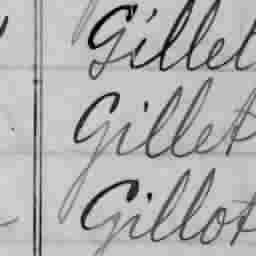 Gillet
Gillet
Gillot